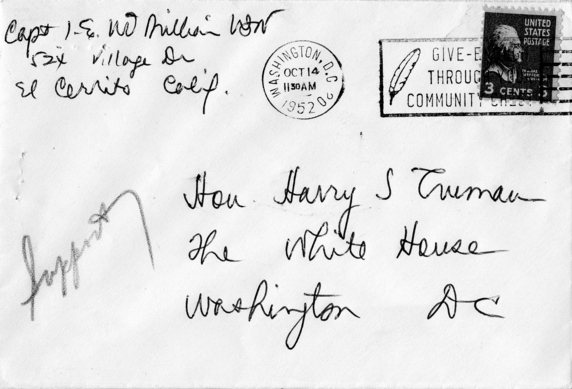 Capt I. E. McMillian USN
Village Dr
El Cerrito Calif.
WASHINGTON, D.C.
OCT 14
11 30 AM
1952
GIVE-E
THROUG
COMMUNITY
UNITED
STATES
POSTAGE
3 CENTS 3
Hon Harry S Truman
The White House
Washington DC
Support